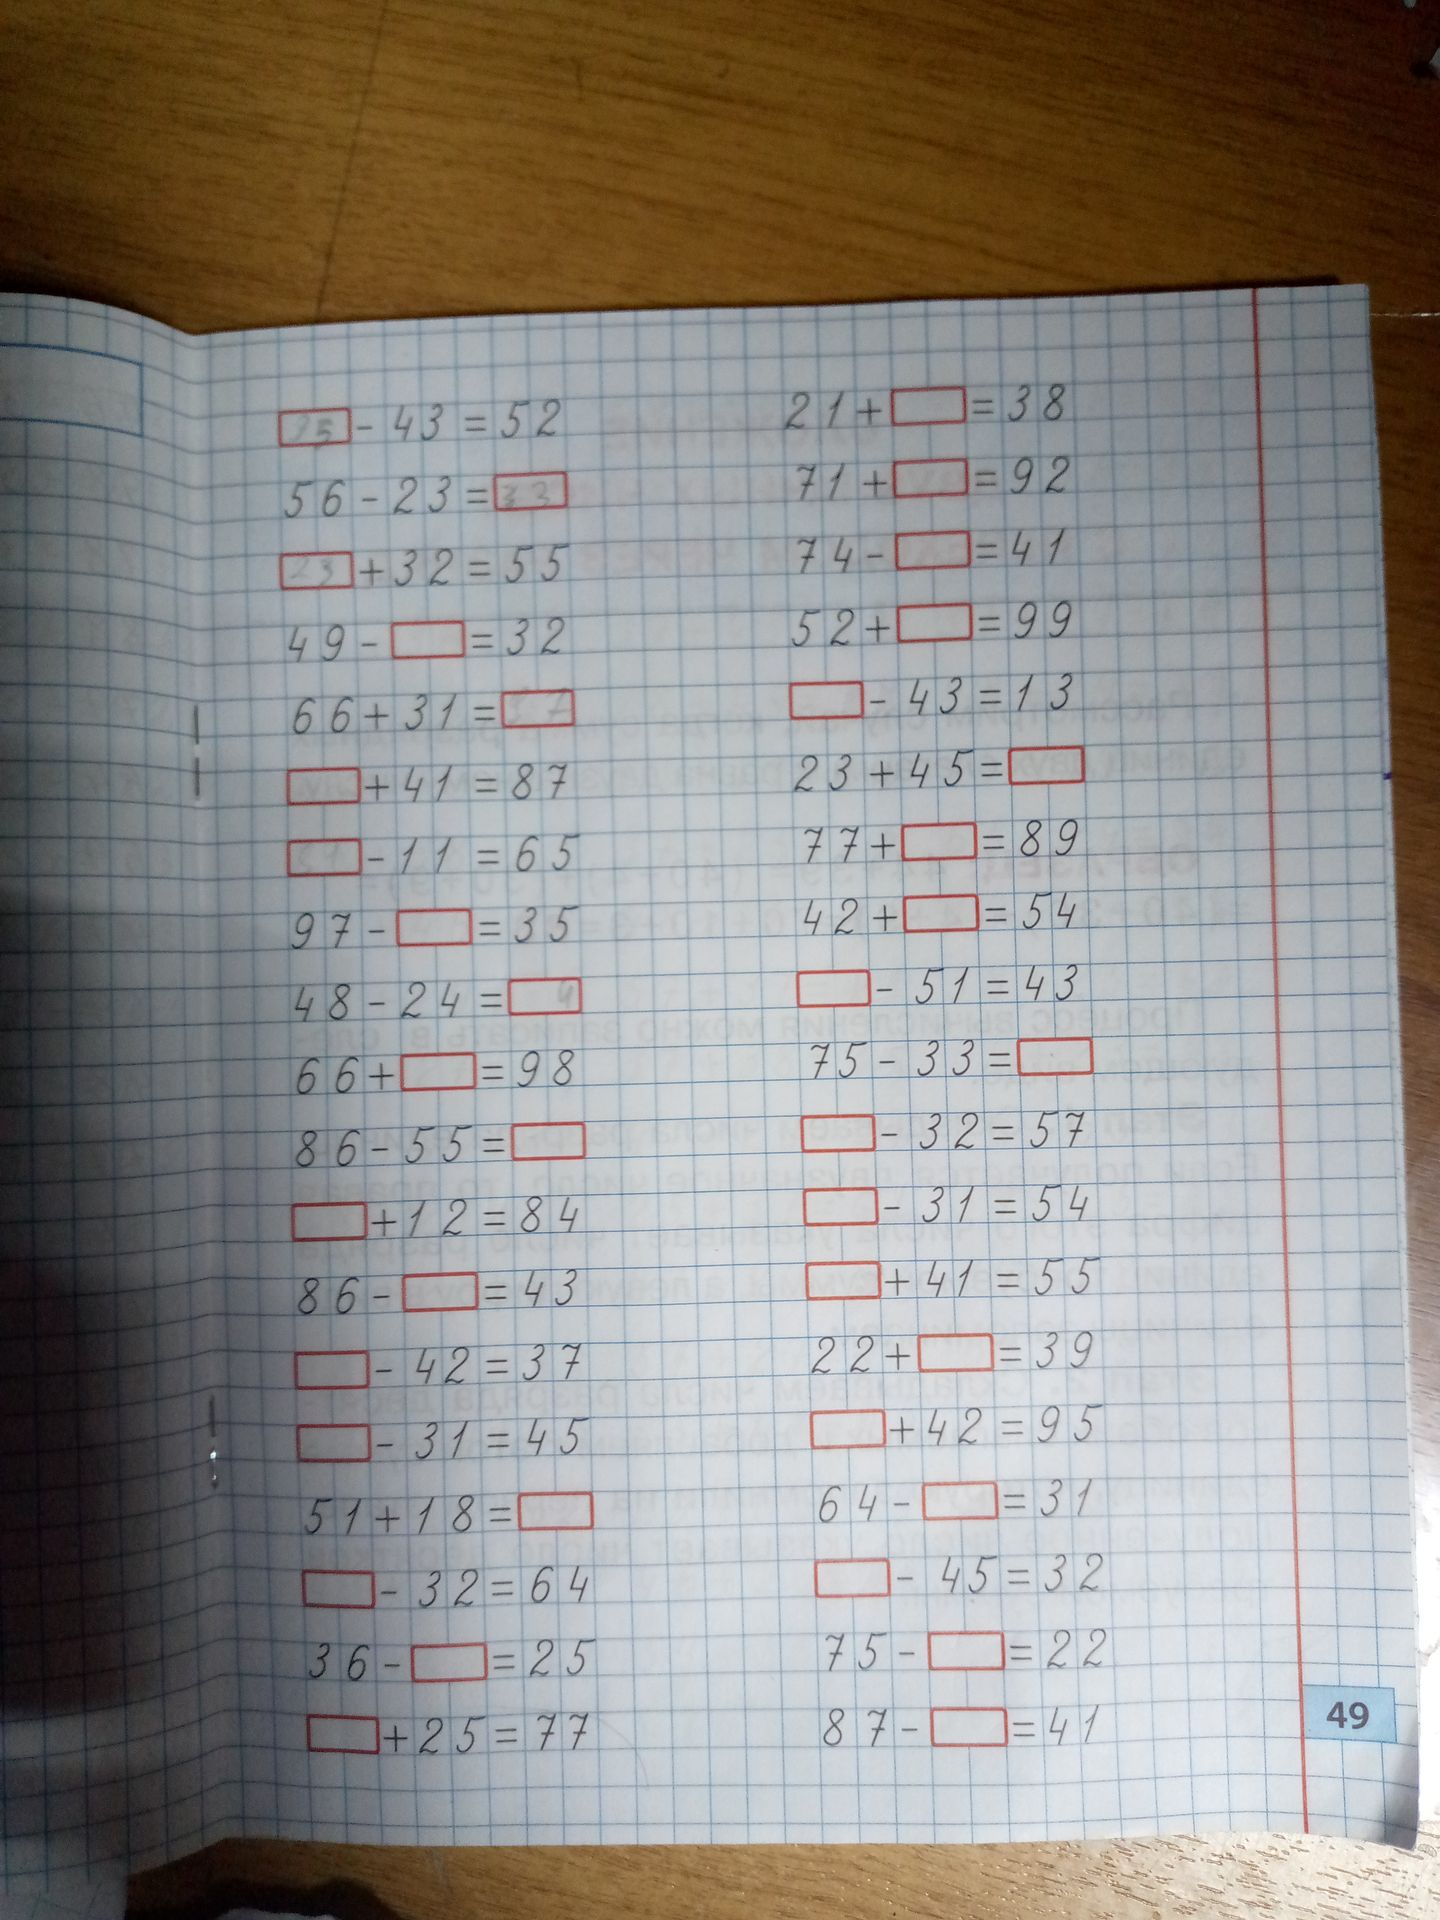 □ - 43 = 52
56 - 23 = 33
23 + 32 = 55
49 - □ = 32
66 + 31 = □
□ + 41 = 87
□ - 11 = 65
97 - □ = 35
48 - 24 = □
66 + □ = 98
86 - 55 = □
□ + 12 = 84
86 - □ = 43
□ - 42 = 37
□ - 31 = 45
51 + 18 = □
□ - 32 = 64
36 - □ = 25
□ + 25 = 77
21 + □ = 38
71 + □ = 92
74 - □ = 41
52 + □ = 99
□ - 43 = 13
23 + 45 = □
77 + □ = 89
42 + □ = 54
□ - 51 = 43
75 - 33 = □
□ - 32 = 57
□ - 31 = 54
□ + 41 = 55
22 + □ = 39
□ + 42 = 95
64 - □ = 31
□ - 45 = 32
75 - □ = 22
87 - □ = 41
49